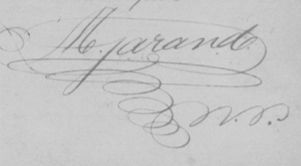 M. Jarand
N. P.